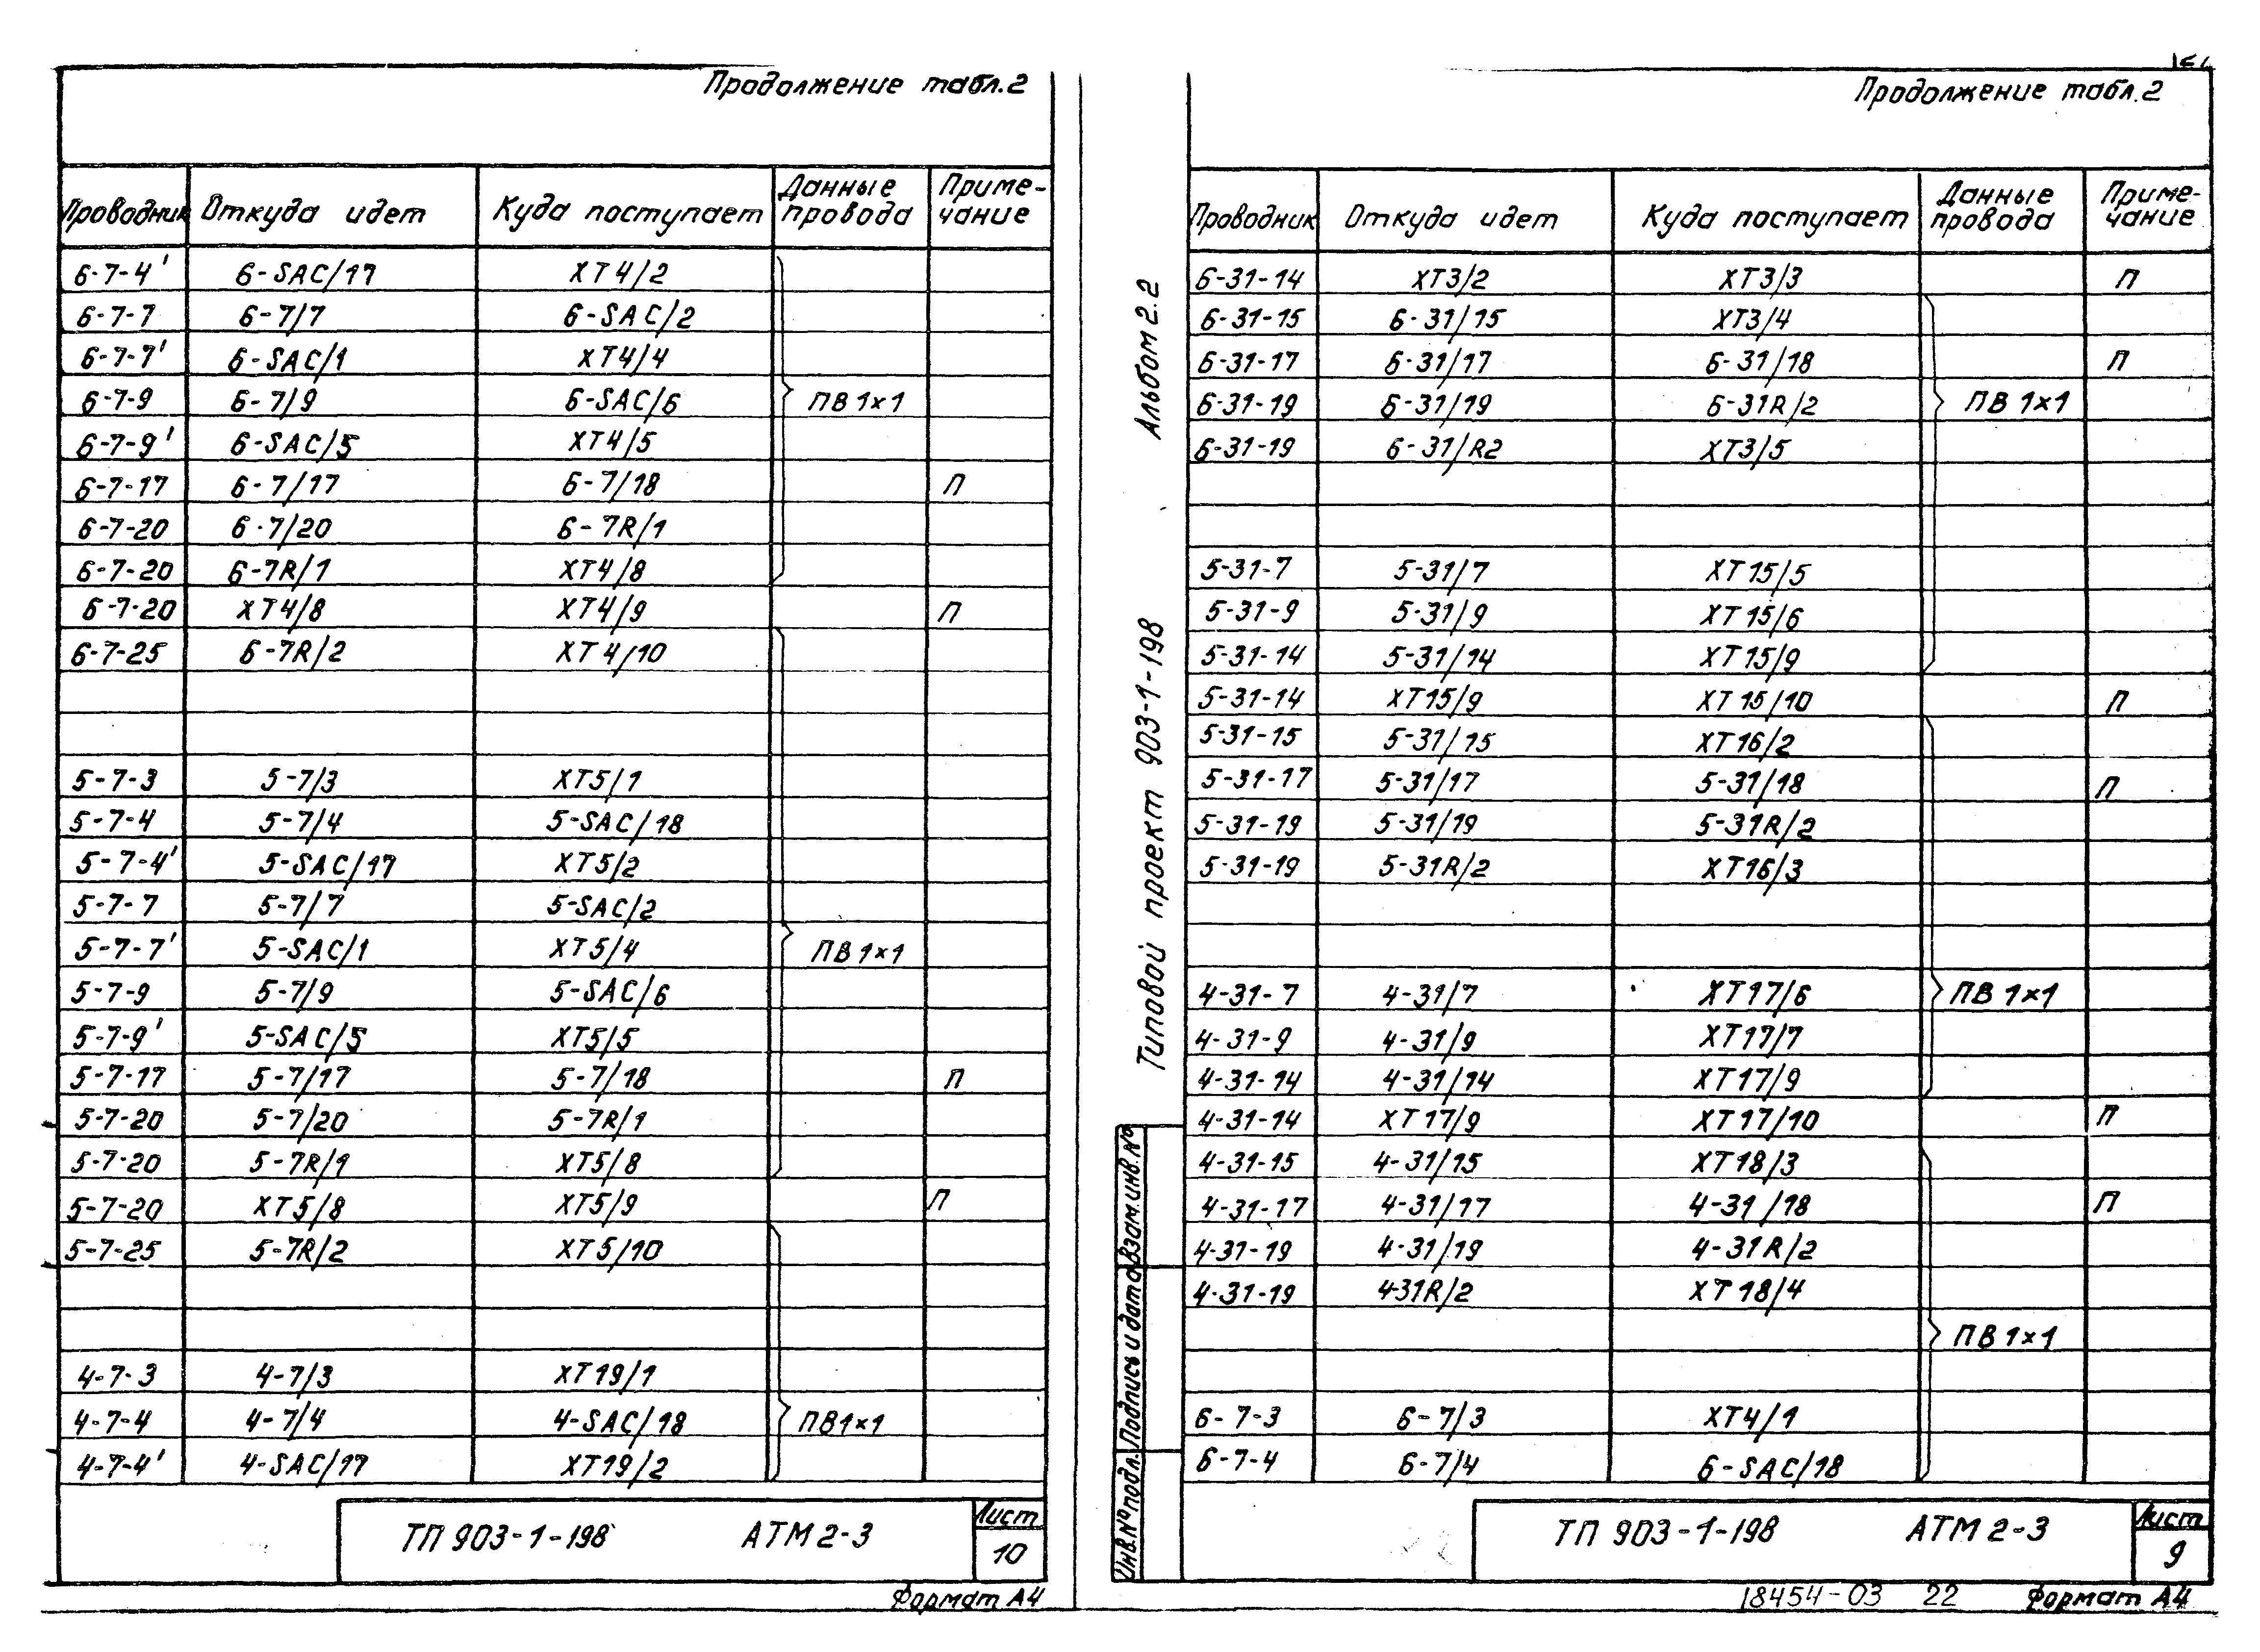 Продолжение табл.2
Проводник Откуда идет Куда поступает Данные провода Приме-чание
6-7-4' 6-SAC/17 XT4/2
6-7-7 6-7/7 6-SAC/2
6-7-7' 6-SAC/1 XT4/4
6-7-9 6-7/9 6-SAC/6 ПВ 1×1
6-7-9' 6-SAC/5 XT4/5
6-7-17 6-7/17 6-7/18 П
6-7-20 6-7/20 6-7R/1
6-7-20 6-7R/1 XT4/8
6-7-20 XT4/8 XT4/9 П
6-7-25 6-7R/2 XT4/10
5-7-3 5-7/3 XT5/1
5-7-4 5-7/4 5-SAC/18
5-7-4' 5-SAC/17 XT5/2
5-7-7 5-7/7 5-SAC/2
5-7-7' 5-SAC/1 XT5/4 ПВ 1×1
5-7-9 5-7/9 5-SAC/6
5-7-9' 5-SAC/5 XT5/5
5-7-17 5-7/17 5-7/18 П
5-7-20 5-7/20 5-7R/1
5-7-20 5-7R/1 XT5/8
5-7-20 XT5/8 XT5/9 П
5-7-25 5-7R/2 XT5/10
4-7-3 4-7/3 XT19/1
4-7-4 4-7/4 4-SAC/18 ПВ1×1
4-7-4' 4-SAC/17 XT19/2
ТП 903-1-198 АТМ 2-3 Лист 10
Формат А4
Альбом 2.2
Типовой проект 903-1-198
Взам.инв.№
Подпись и дата
Инв.№ подл.
Продолжение табл.2
Проводник Откуда идет Куда поступает Данные провода Приме-чание
6-31-14 XT3/2 XT3/3 П
6-31-15 6-31/15 XT3/4
6-31-17 6-31/17 6-31/18 П
6-31-19 6-31/19 6-31R/2 ПВ 1×1
6-31-19 6-31/R2 XT3/5
5-31-7 5-31/7 XT15/5
5-31-9 5-31/9 XT15/6
5-31-14 5-31/14 XT15/9
5-31-14 XT15/9 XT15/10 П
5-31-15 5-31/15 XT16/2
5-31-17 5-31/17 5-31/18 П
5-31-19 5-31/19 5-31R/2
5-31-19 5-31R/2 XT16/3
4-31-7 4-31/7 XT17/6 ПВ 1×1
4-31-9 4-31/9 XT17/7
4-31-14 4-31/14 XT17/9
4-31-14 XT17/9 XT17/10 П
4-31-15 4-31/15 XT18/3
4-31-17 4-31/17 4-31/18 П
4-31-19 4-31/19 4-31R/2
4-31-19 4-31R/2 XT18/4
ПВ 1×1
6-7-3 6-7/3 XT4/1
6-7-4 6-7/4 6-SAC/18
ТП 903-1-198 АТМ 2-3 Лист 9
18454-03 22 Формат А4